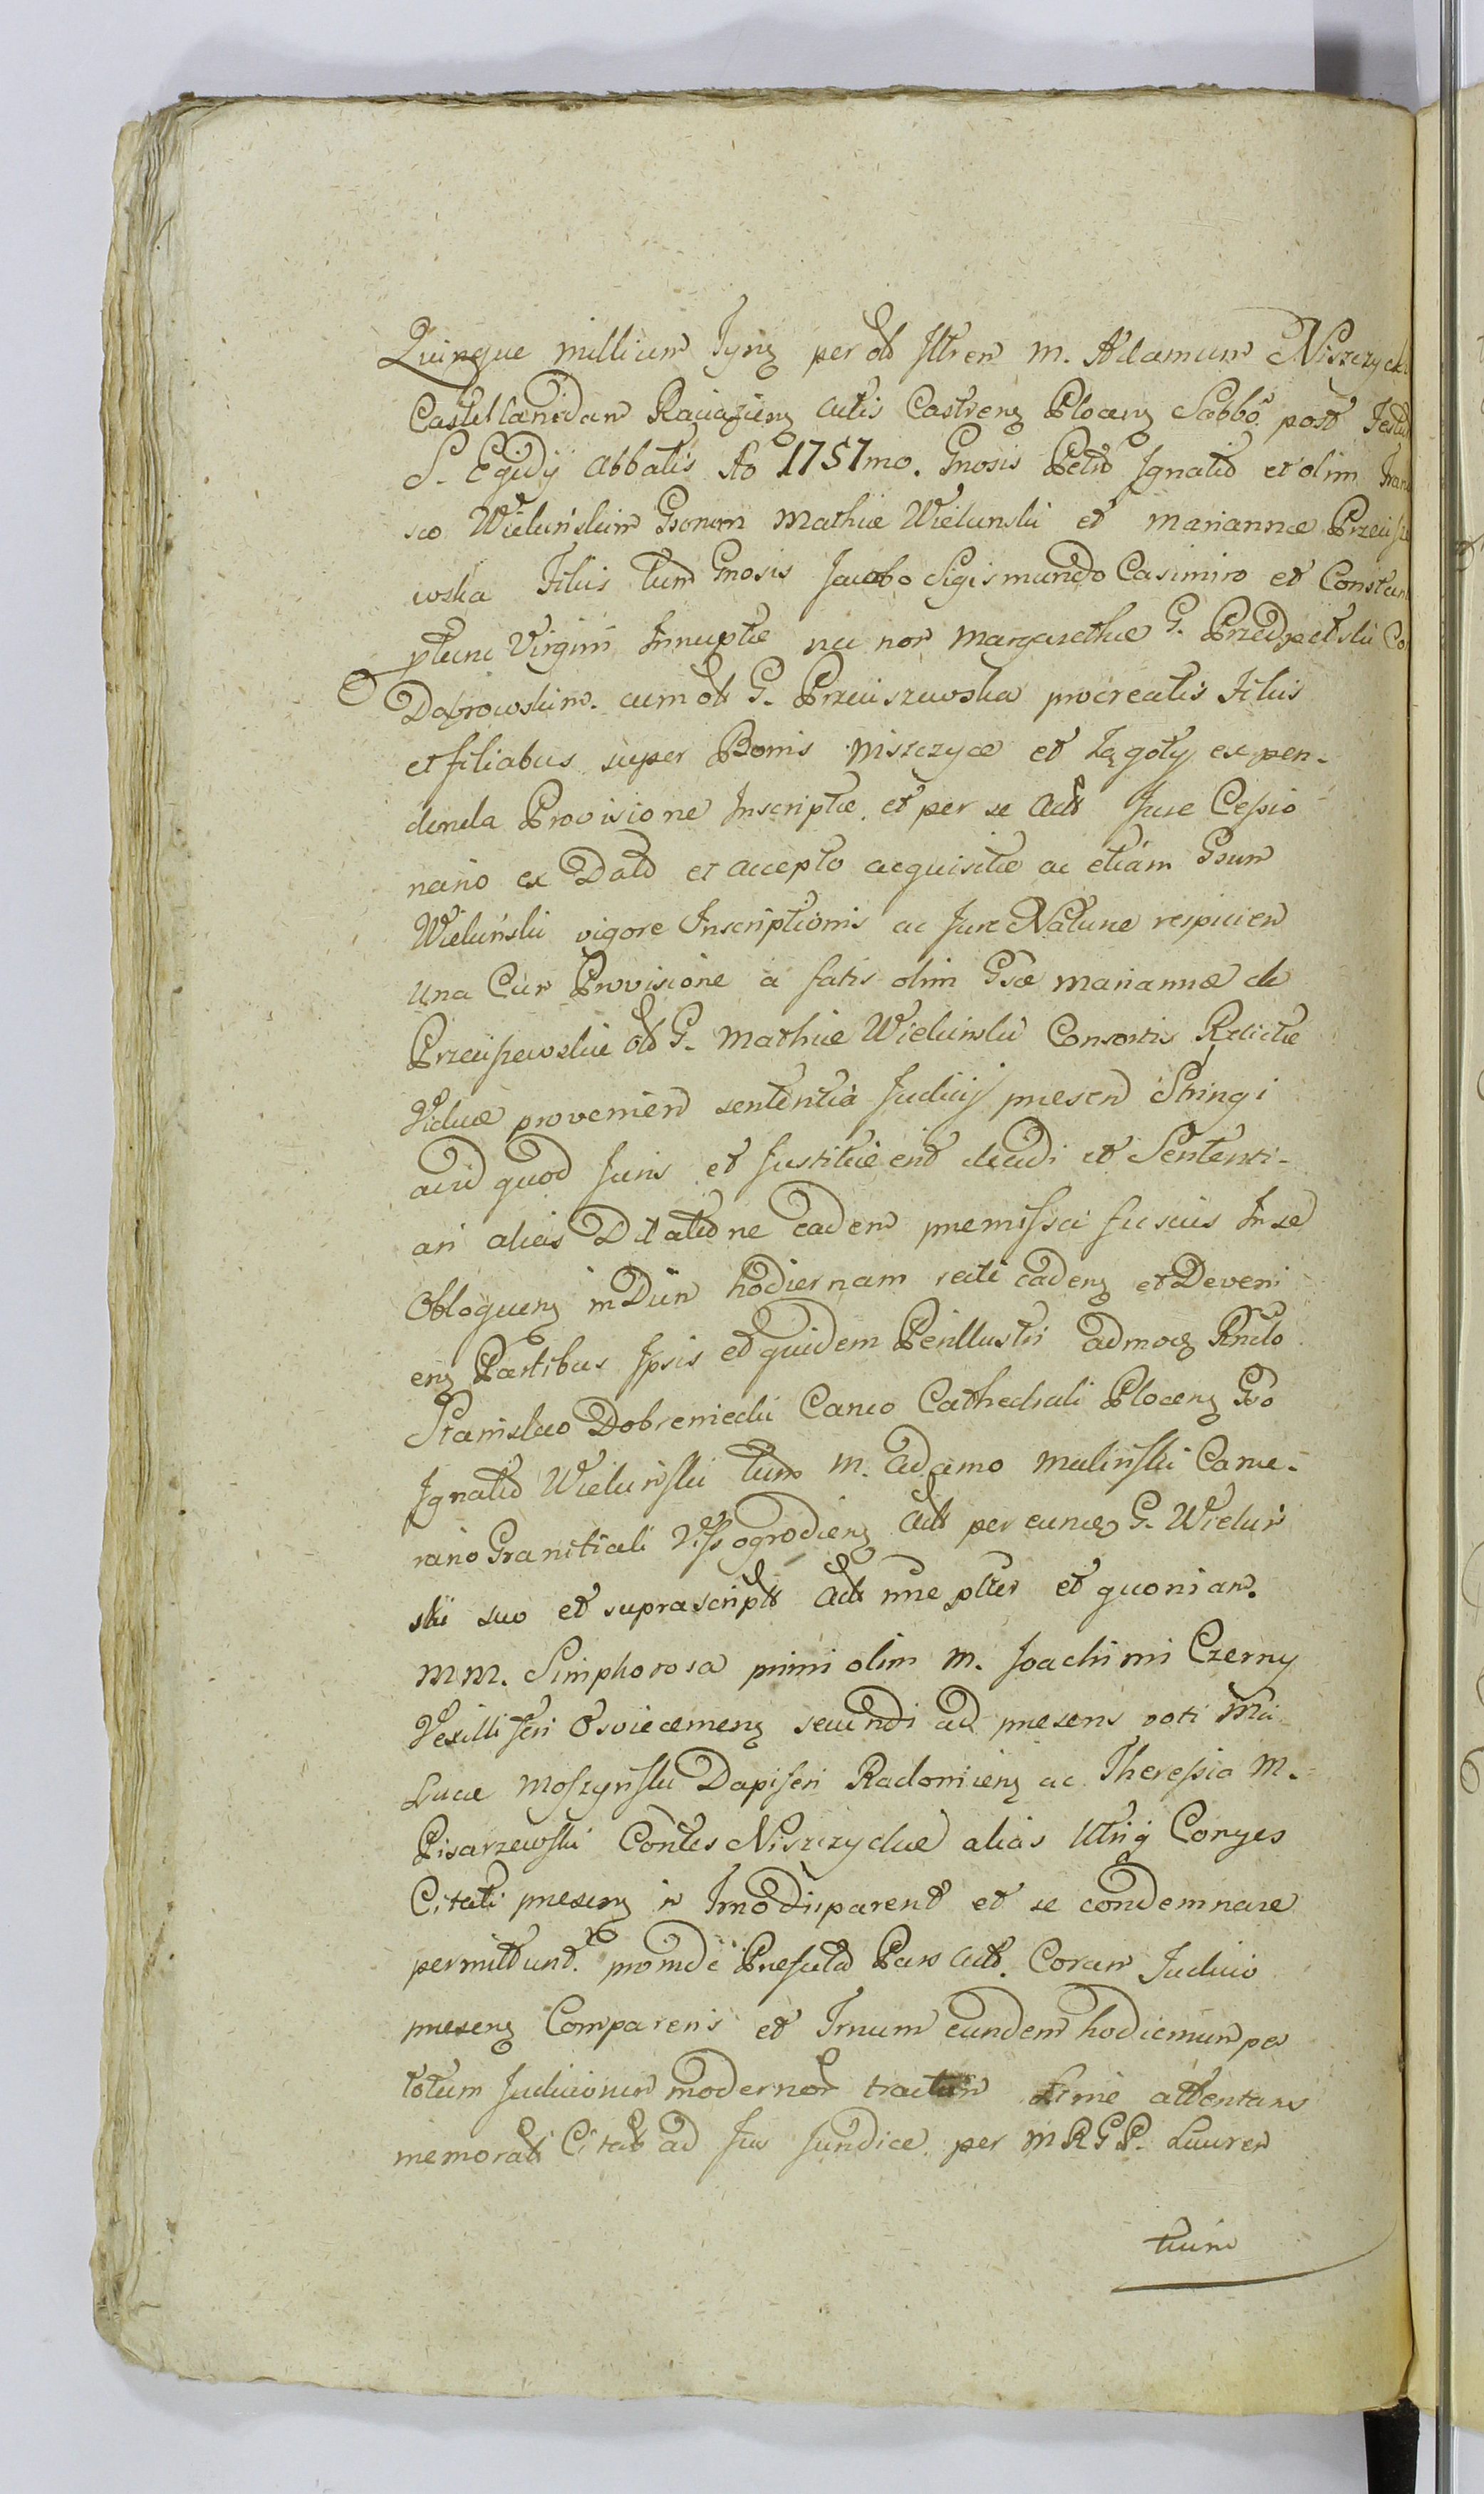 Quinque millium per Illren M. Adamum Niszczyck
Castellanidam Raciążień Actis Castreń Płoceń Sabbo post Festu
S. Egidy Abbatis Ao 1757mo. Gnosis Petro Ignatio et olim Fran
sco Wieluńskim Gsorum Mathiæ Wieluński et Mariannæ Przecisze
wska Filiis tum Gnosis Jacobo Sigismundo Casimiro et Constan
ptunc Virgini Innuptæ nec non Margarethæ G. Co
Dąbrowskim. cum ol G. Przeciszewska procreatis Filiis
et filiabus super Bonis Niszczyce et Łągoty expen-
denda Provisione Inscriptæ et per se Act Jure Cessio
nario ex Dato et accepto acquisitæ ac etiam Gsum
Wieluński vigore Inscriptionis ac Jure Naturæ respicien
una Cum Provisione a fatis olim Gsæ Mariannæ de
Przeciszewskie ol G. Mathiæ Wieluński Consortis Relictæ
Viduæ provenien sententia Judicij presen Stringi
acid quod Juris et Justitiæ erit decidi et Sententi-
ari alias Dilatione eadem premissa fusius In se
Obloqueń in Diem hodiernam recte cadeń et Deveni
eń Partibus Ipsis et quidem Perillustri admoq Rndo
Stanislao Dobrenieckii Canco Cathedrali Płoceń Gso
Ignatio Wieluński tum M. Adamo Maliński Came-
rario Granitiali Wissogrodień Act per eunq G. Wieluń
ski suo et suprascript Act nne plter et quoniam
MM. Simphorosa primi olim M. Joachimi Czerny
Vexilliferi Osviecemeń secundi ad presens voti M
Lucæ Moszyński Dapiferi Radomień ac Theressia M.
Pisarzewski Contes Niszczyckæ alias Utriq Conges
Citati preseń in Trno disparent et se condemnare
permittunt. proinde Prefata Pars Act. Coram Judicio
preseń Comparens et Trnum eundem hodiernum per
totum Judiciorum modernor tractum attentans
memorat Citat ad Jus Jundice per MRGP. Lauren
tium